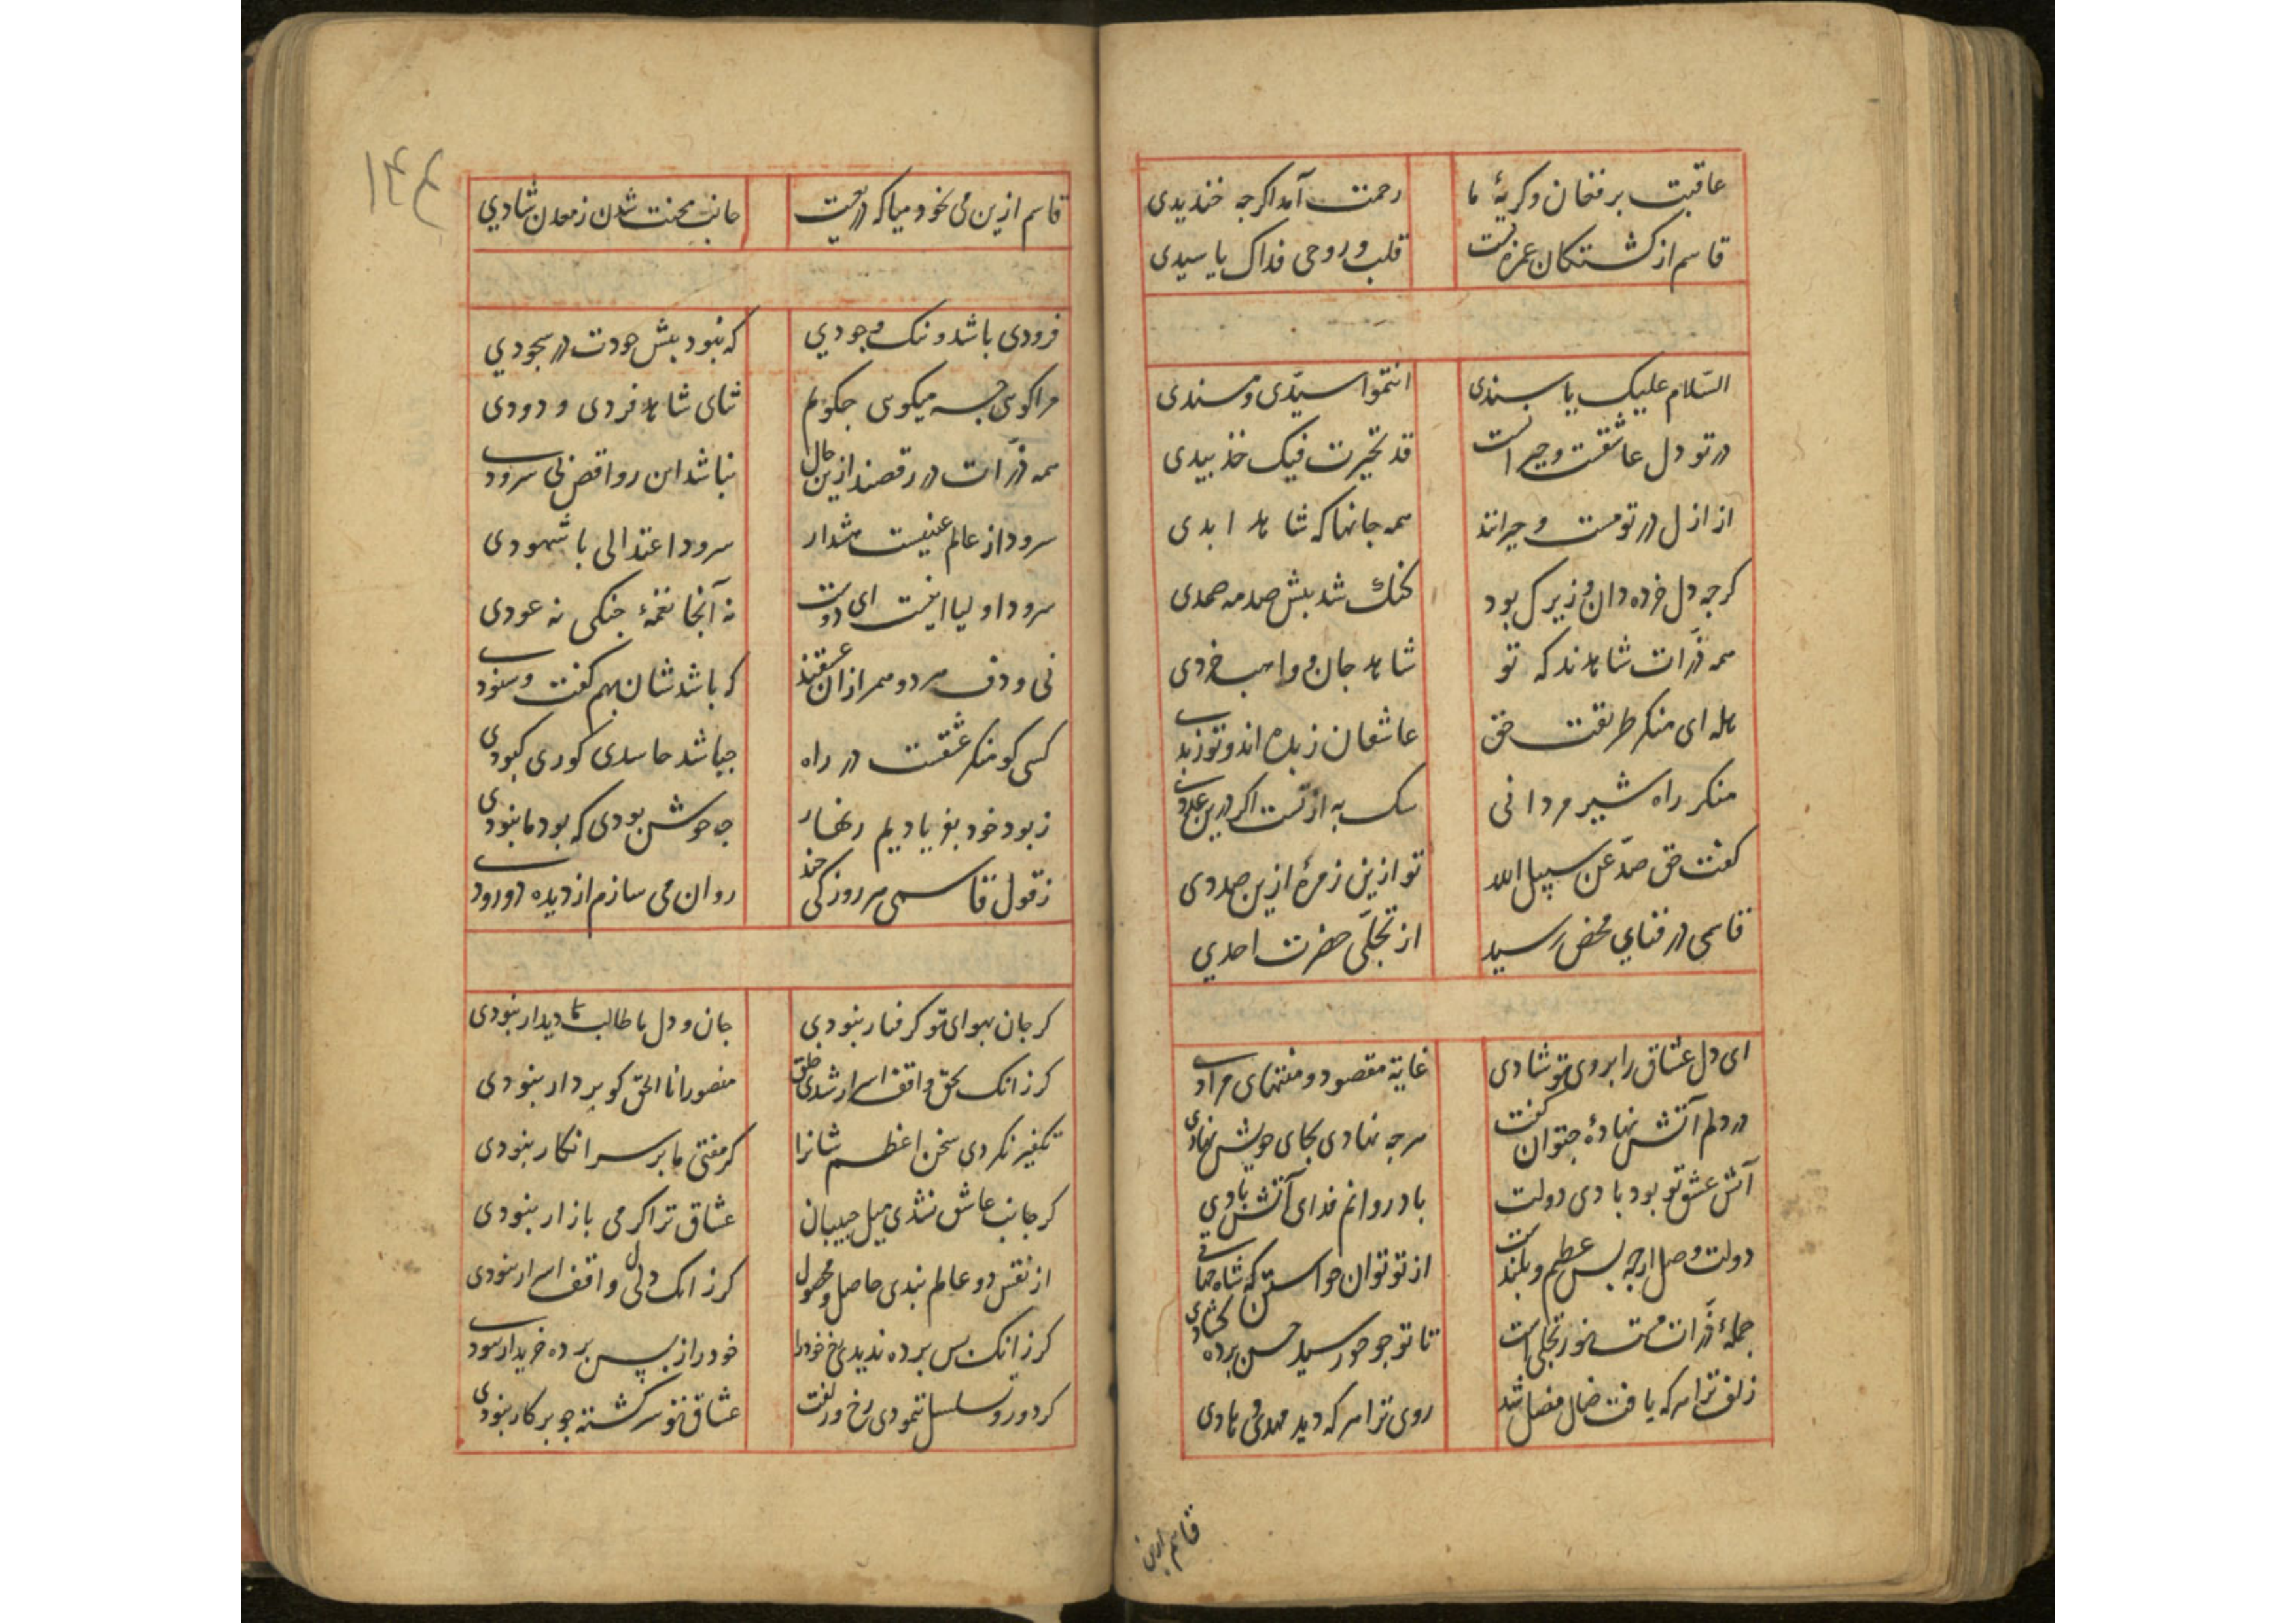 عاقبت بر فغان و کریهٔ ما رحمت آمد اکرجه خندیدی
قاسم از کشتکان غمزه تست قلب و روحی فداک یا سیدی
السّلام علیک یا سندی انتموا سیّدی و مسندی
در تو دل عاشقست و حیرانست قد تحیّرت فیک خذ بیدی
از ازل در تو مست و حیرانند همه جانها که شاهد ابدی
کرجه دل خرده دان و زیرک بود کنک شد پیش صدمه صمدی
همه ذرّات شاهدند که تو شاهد جان و واهب خردی
هله ای منکر طریقت حق عاشقان زبده اند و تو زبدی
منکر راه شیر مردانی سک به از تست اکر درین عددی
کفت حق صدّ عن سبیل الله تو ازین زمرهٔ ازین صددی
قاسمی در فنای محض رسید از تجلّی حضرت احدی
ای دل عشاق را بروی تو شادی غایة مقصود و منتهای مرادی
در دلم آتش نهادهٔ جتوان کفت هرجه نهادی بجای خویش نهادی
آتش عشق تو بود بادی دولت باد روانم فدای آتش بادی
دولت وصل ارجه بس عظیم و بلندست از تو توان خواستن که شاه جهانی
جملهٔ ذرّات مست نور تجلی است تا تو جو خورشید حسن برده کشادی
زلف ترا هرکه یافت ضال مضل شد روی ترا هرکه دید مهدی و هادی
قاسم ازین
۱۴۴
قاسم ازین می نخورد میا که دریغست جانب محنت شدن ز معدن شادی
فرودی باشد و ننک وجودی که نبود پیش جودت در سجودی
مراکوئی جسه میکوی جکویم ثنای شاهد فردی و دودی
همه ذرّات در رقصند ازین حال نباشد این رواقص بی سرودی
سرود از عالم غیبست هشدار سرود اعتدالی با شهودی
سرود اولیا اینست ای دوست نه آنجا نغمهٔ جنکی نه عودی
نی و دف هر دو همراز ان عشقند که باشدشان بهم کفت و شنودی
کسی کو منکر عشقست در راه جباشد حاسدی کوری کبودی
ز بود خود بفریادیم زنهار جه خوش بودی که بود ما نبودی
ز قول قاسمی هر روز کی جند روان می سازم از دیده دو رودی
کر جان بهوای تو کرفتار نبودی جان و دل ما طالب دیدار نبودی
کر زانک بحق واقف اسرار شدی خلق منصور انا الحق کو بر دار نبودی
تکفیر نکردی سخن اعظم شانرا کر مفتی ما بر سر انکار نبودی
کر جانب عاشق نشدی میل حبیبان عشاق ترا کرمی بازار نبودی
از نقش دو عالم بندی حاصل و محصول کر زانک دلی واقف اسرار نبودی
کر زانک پس برده ندیدی رخ خود را خود را ز پس برده خریدار نبودی
کر دور و تسلسل ننمودی رخ و زلفت عشاق تو سرکشته جو برکار نبودی